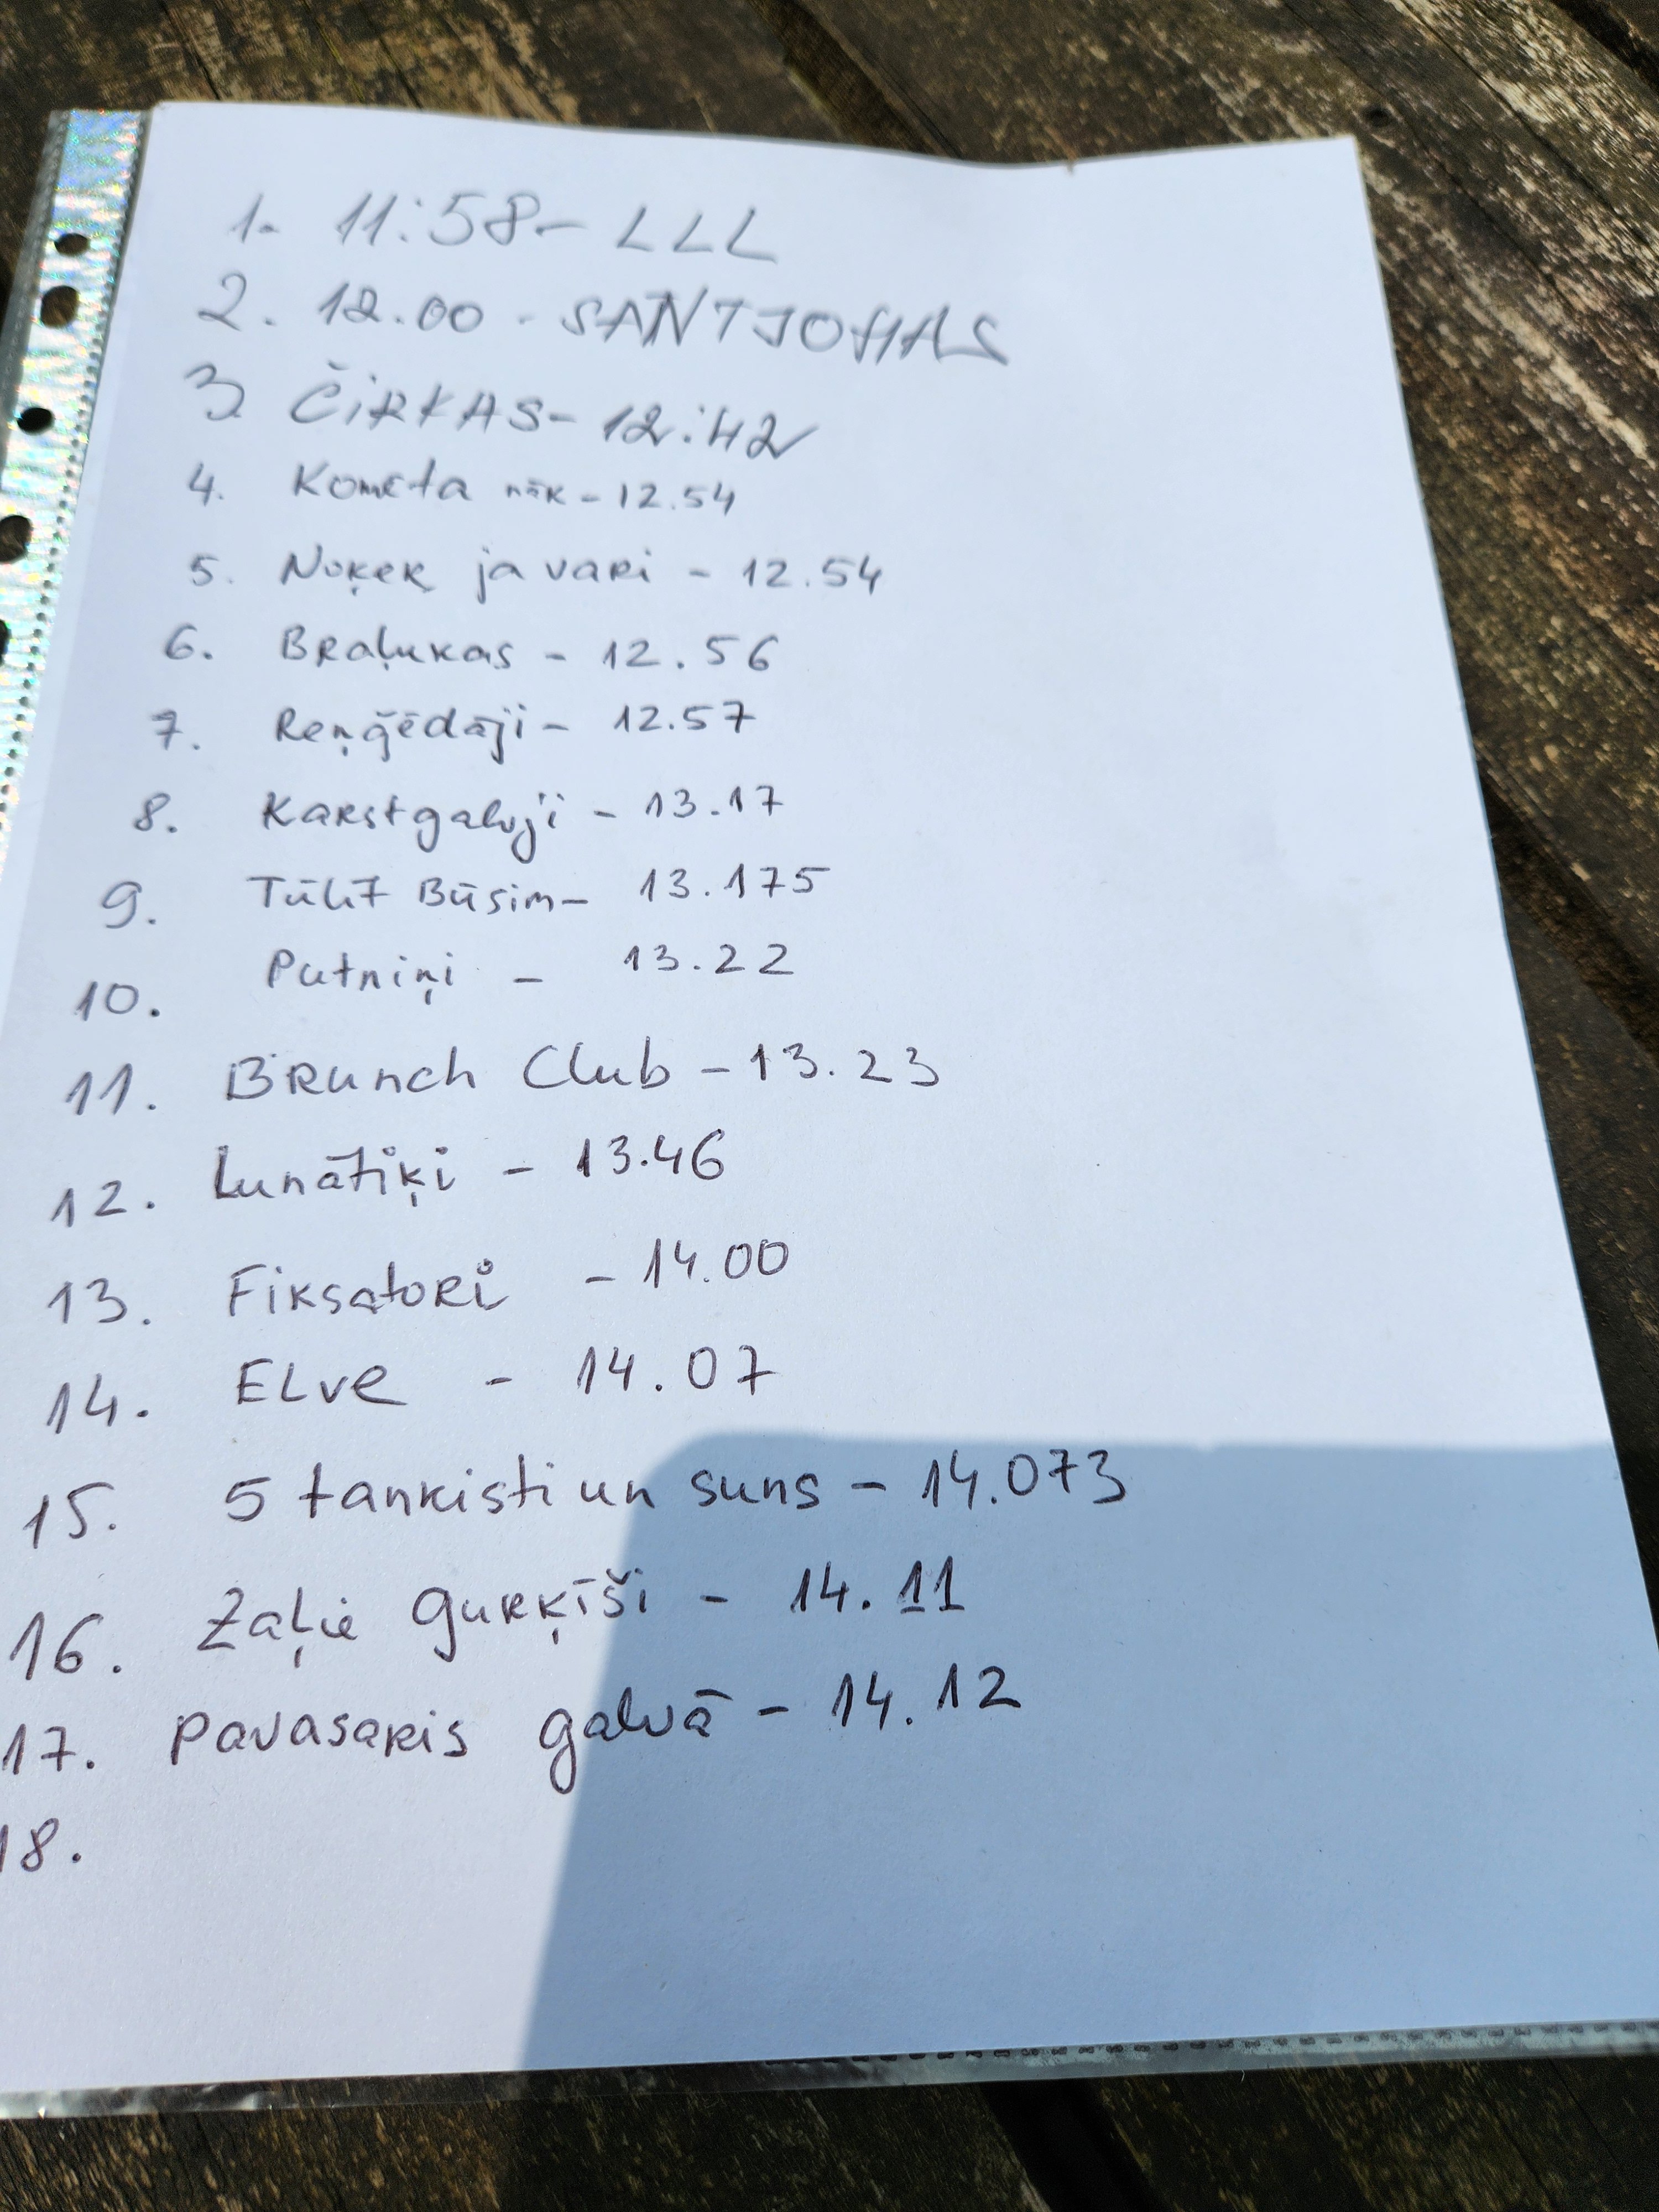 1. 11:58 - LLL
2. 12.00 - SANTJOHAS
3 ČiRKAS - 12:42
4. Kometa nāk - 12.54
5. Noķer ja vari - 12.54
6. Braļukas - 12.56
7. Reņģēdāji - 12.57
8. Karstgalvji - 13.17
9. Tūlīt Būsim - 13.175
10. Putniņi - 13.22
11. Brunch Club - 13.23
12. Lunātiķi - 13.46
13. Fiksatori - 14.00
14. ELve - 14.07
15. 5 tankisti un suns - 14.073
16. Zaļie gurķīši - 14.11
17. Pavasaris galvā - 14.12
18.